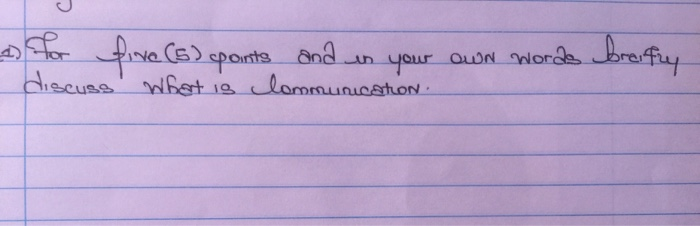 1) For five (5) points and in your own words breifly
discuss what is Communication.